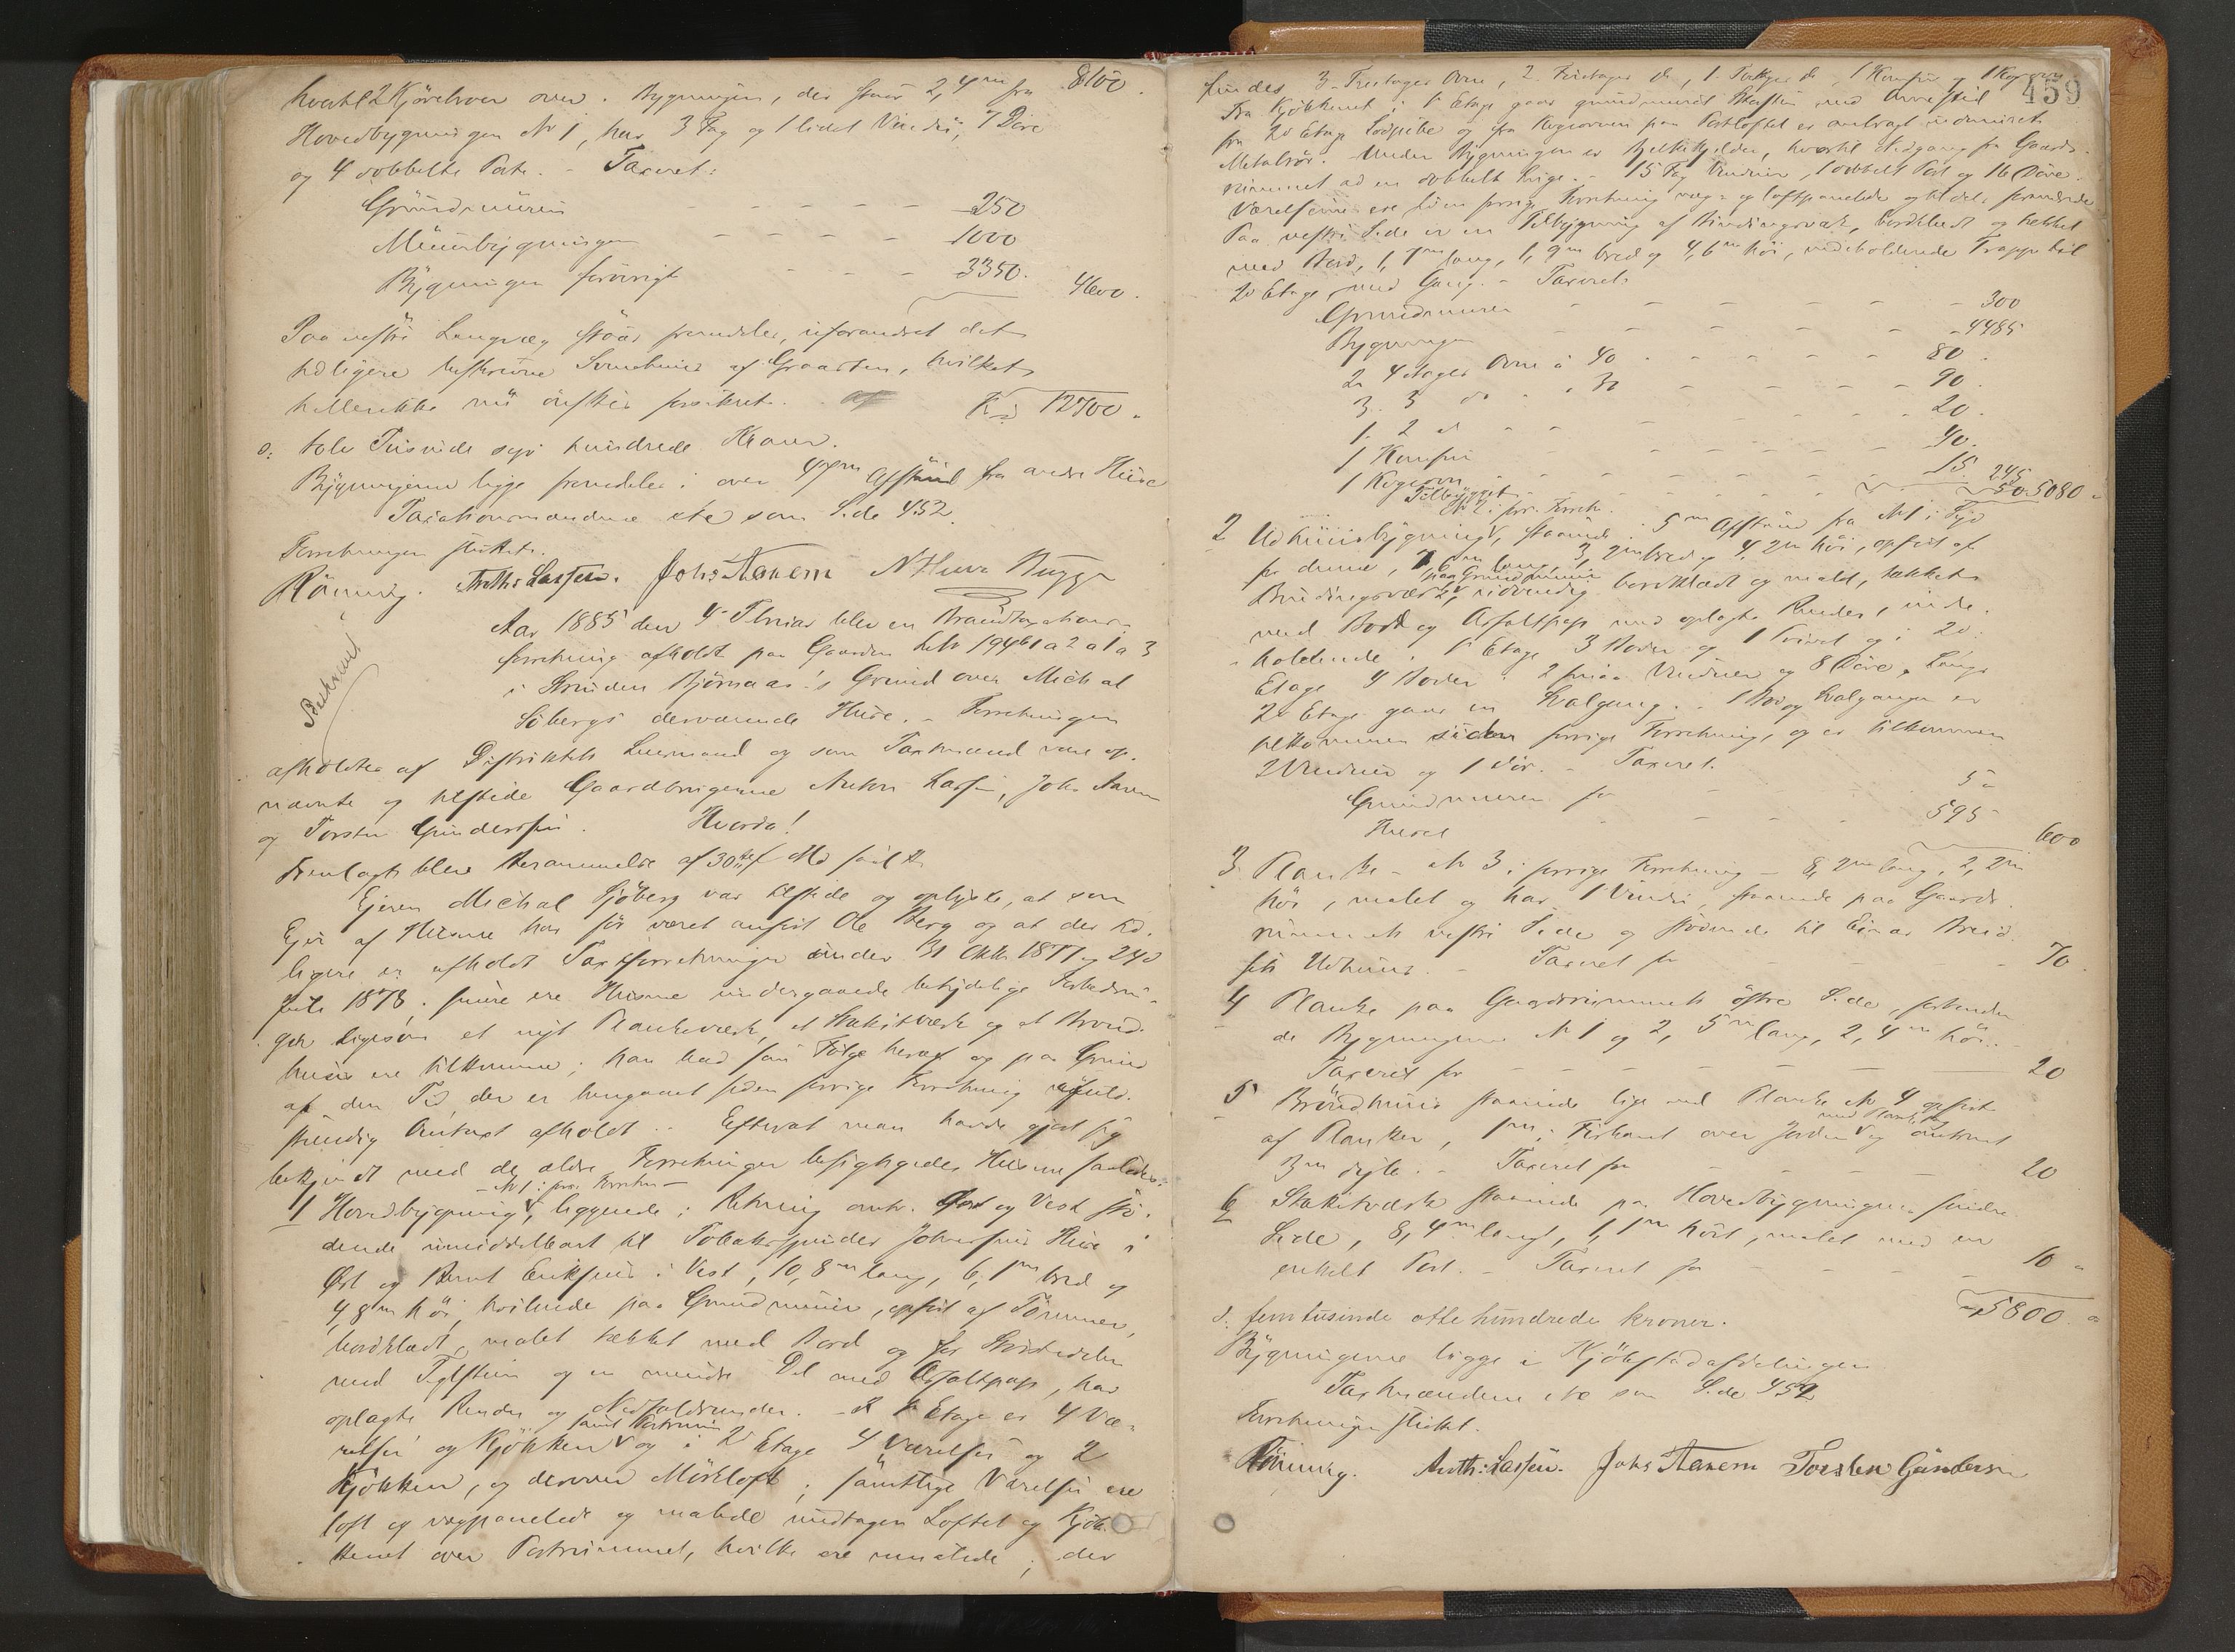 hvortil 2 Kjörebroer over. Bygningen, der staar 2,4m fra 8100.
Hovedbygningen No 1, har 3 Fag og 1 lidet Vindu, 7 Döre
og 4 dobbelte Porte. - Taxeret:
Grundmuren - - - - - 250
Muurbygningen - - - - 1000
Bygningen forövrigt - - - 3350. 4600.
Paa vestre Langvæg staar fremdeles, uforandret det
tidligere beskrevne Svinehuus af Graasten, hvilket
hellerikke nu önskes forsikret. Kr 12700.
o: tolv Tusinde syv hundrede Kroner.
Bygningerne ligge fremdeles i over Afstand fra andre Huse
Taxationsmændene ete som Side 452.
Forretningen sluttet.
Rönning. Anth: Lassen. Johs Aanem N Huva Bugge
Aar 1885 den 4 Februar blev en Brandtaxations-
forretning afholdt paa Gaarden Lebr
i Strinden Björnaas's Grund over Michal
Söbergs derværende Huse. - Forretningen
Beskrevet
afholdtes af Distriktets Lensmand og som Taxtmænd vare op-
nævnte og tilstede Gaardbrugerne Anton Lassen, Johs Aanem
og Torsten Gundersen. Hvorda!
Fremlagt blev Berammelse af 30te f Md saal
Ejeren Michal Sjöberg var tilstede og oplyste, at som
Ejer af Husene har för været anfört Ole Berg og at der tid-
ligere er afholdt Taxtforretninger under 31 Oktbr 1877 og 24de
Juli 1878; senere ere Husene undergaaede betydelige Forbedrin-
ger ligesom et nyt Plankeværk, et Stakitværk og et Brönd-
huus ere tilkomne; han bad som Fölge heraf og paa Grund
af den Tid, der er hengaaet siden forrige Forretning ny fuld-
stændig Omtaxt afholdt. - Efterat man havde gjort sig
bekjendt med de ældre Forretninger besigtigedes Husene saaledes:
- No 1 i forr. Forretn -
1 Hovedbygning, liggende i Retning omtr. Öst og Vest, stö-
dende umiddelbart til Tobaksspinder Johnsens Huse i
Öst og Bernt Eriksens i Vest, 10,8m lang, 6,1m bred og
4,8m höi, hvilende paa Grundmuur, opfört af Tömmer,
bordklædt, malet tækket med Bord og for Störstedelen
med Teglsteen og en mindre Del med Asfaltpap, har
oplagte Render og Nedfaldsrender. - I 1e Etage er 4 Væ-
samt Portrum
relser og Kjökken og i 2 Etage 4 Værelser og 2
Kjökken, og derover Mörkloft; samtlige Værelser ere
loft og vægpanelede og malede undtagen Loftet og Kjök-
kenet over Portrummet, hvilke ere umalede; der
459
findes 3-Treetages Ovne, 2 do, 1 do, 1 Komfur og 1 Kogeovn
Fra Kjökkenet i 1e Etage gaar grundmuret Skorsten med Arnested
fra 2de Etage Sodpibe og fra Kogeovnen paa Portloftet er anbragt indmuret
Metalrör. Under Bygningen er Kjelder, hvortil Nedgang fra Gaards-
rummet ad en dobbelt Luge. - 15 Fag Vinduer, 1 dobbelt Port og 16 Döre.
Værelserne ere siden forrige Forretning væg- og loftpanelede og til dels
Paa vestre Side er en Tilbygning af Bindingsværk, bordklædt og tækket
med Bord, 1,7m lang, 1,9m bred og 4,6m höi, indeholdende Trappe til
2de Etage, med Gang. - Taxeret
Grundmuren - - - - - 300
Bygningen - - - - - 4485
2 4 etages Ovne à 40 - - - - 80.
3. 3 do " 30 - - - - 90.
1. 2 do - - - - 20.
1 Komfur - - - - 40.
1 Kogeovn - - - - 15 245
Tilbygget - - - - 50 5080.
No 2 i forr. Forretn.
2 Udhuusbygning, staaende i 5m Afstand fra No 1 i Syd
for denne, lang, 3,2m bred og 4,2m höi, opfört af
paa Grundmuur
Bindingsværk, udvendig bordklædt og malet, tækket
med Bord og Asfaltpap med oplagte Render, inde-
holdende i 1e Etage 3 Boder og 1 Privet og i 2de
Etage 4 Boder. 2 smaa Vinduer og 8 Döre. Langs
2de Etage gaar en Svalgang. 1 Bod og Svalgangen er
tilkommen siden forrige Forretning, og er tilkommen
2 Vinduer og 1 Dör. - Taxeret.
Grundmuren for - - - 5
Huset - - - - 595 600
3. Planke - No 3 i forrige Forretning - 8,2m lang, 2,2m
höi, malet og har 1 Vindu, staaende paa Gaards-
rummets vestre Side og stödende til Einar Breid-
sets Udhuus. - Taxeret for - - - - 70.
4 Planke paa Gaardsrummets östre Side, forbinden-
de Bygningerne No 1 og 2, 5m lang, 2,4m höi. -
Taxeret for - - - - - 20
5 Bröndhuus staaende lige ved Planke No 4 opfört
af Planker, 1m i Firkant over Jorden og omtrent
3m dyb. - Taxeret for - - - 20
6 Stakitværk staaende paa Hovedbygningens söndre
Side, 8,4m langt, 1,1m höit, malet med en
enkelt Port. - Taxeret for - - - 10
5800.
o: femtusinde otte hundrede kroner.
Bygningerne ligge i Kjöbstadafdelingen
Taxtmændene ete som Side 452
Forretningen sluttet.
Rönning. Anth: Lassen. Johs Aanem Torsten Gundersen